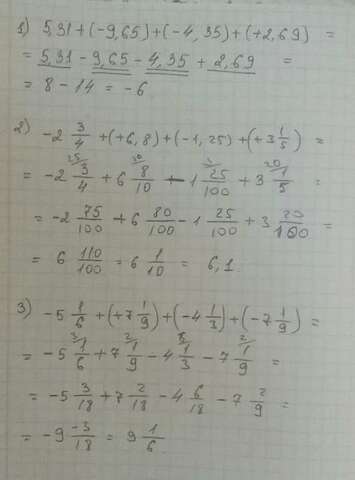 1) 5,31 + (-9,65) + (-4,35) + (+2,69) =
= 5,31 - 9,65 - 4,35 + 2,69 =
= 8 - 14 = -6
2) -2 3/4 + (+6,8) + (-1,25) + (+3 1/5) =
= -2 3/4 + 6 8/10 - 1 25/100 + 3 1/5 =
= -2 75/100 + 6 80/100 - 1 25/100 + 3 20/100 =
= 6 110/100 = 6 1/10 = 6,1
3) -5 1/6 + (+7 1/9) + (-4 1/3) + (-7 1/9) =
= -5 1/6 + 7 1/9 - 4 1/3 - 7 1/9 =
= -5 3/18 + 7 2/18 - 4 6/18 - 7 2/9 =
= -9 -3/18 = 9 1/6